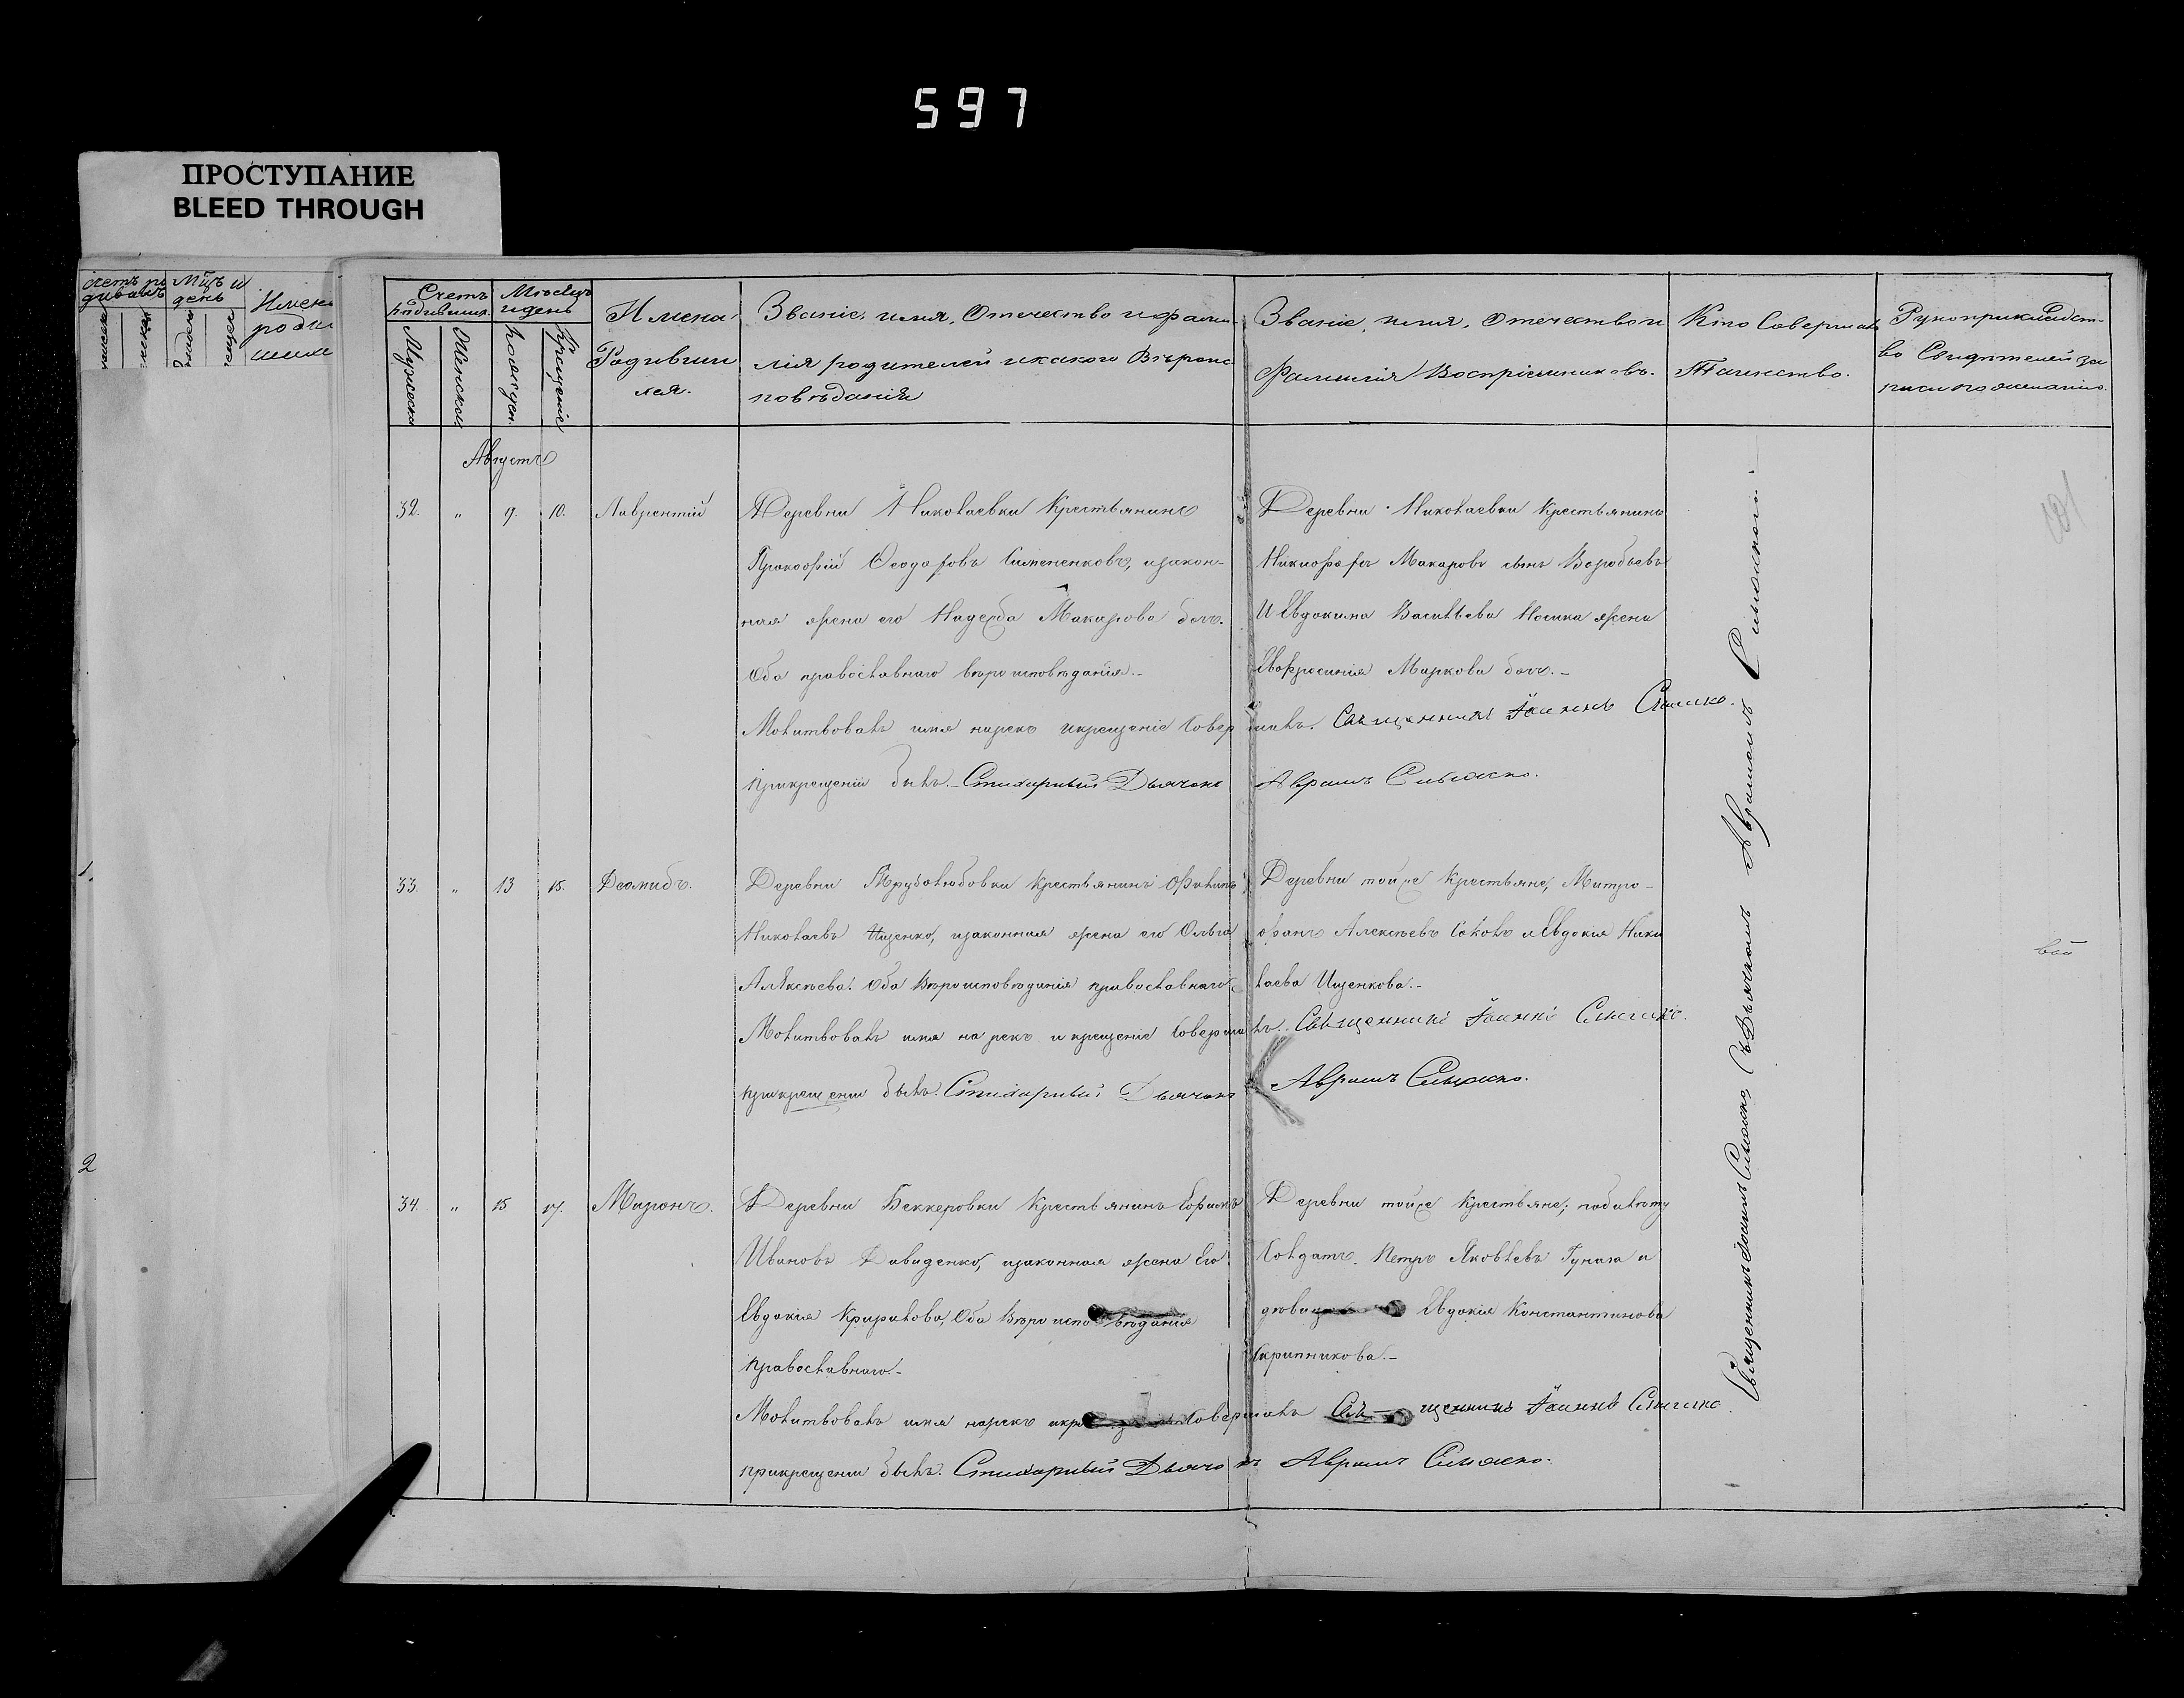 597
ПРОСТУПАНИЕ
BLEED THROUGH
Счетъ родившихся
Мѣсяцъ и день
Мужеска
Женска
Рожден.
Крещеніе
Имена
Родивши
хся.
Званіе, имя, Отечество и фами-
лія родителей и какого Вѣроис
повѣданія
Званіе, имя, Отечество и
Фамилія Воспріемниковъ.
Кто Совершалъ
Таинство.
Рукоприкладст-
во Свидѣтелей за
писи по желанію.
Августъ
32. " 9. 10. Лаврентій
Деревни Николаевки Крестьянинъ
Прокофій Феодоровъ Симененковъ, изакон-
ная жена его Надежда Макарова доч.
Оба православнаго вѣроисповѣданія.-
Молитвовалъ имя нарекъ икрещеніе Совер
прикрещеніи былъ.- Стихарный Дьячокъ
Деревни Николаевки Крестьянинъ
Никифоръ Макаровъ сынъ Воробьевъ
И Евдокима Васильева Носика жена
Евфросинія Маркова доч.-
шилъ. Священникъ Іоаннъ
Аврамъ
33. " 13 15. Деомидъ.
Деревни Трудолюбовки Крестьянинъ Филипъ
Николаевъ Ищенко, изаконная жена его Ольга
Алексѣева. Оба Вѣроисповѣданія православнаго
Молитвовалъ имя нарекъ и крещеніе Соверши
прикрещеніи былъ. Стихарный Дьячокъ
Деревни тойже Крестьяне, Митро-
фанъ Алексѣевъ Соколъ и Евдокія Нико
лаева Ищенкова.-
лъ. Священникъ Іоаннъ
Аврамъ
34. " 15 17. Миронъ.
Деревни Беккеровки Крестьянинъ Ефимъ
Ивановъ Давиденко, изаконная жена Его
Евдокія Кирилова, Оба Вѣроисповѣданія
православнаго.-
Молитвовалъ имя нарекъ икрещеніе Совер
прикрещеніи былъ. Стихарный Дьячо
Деревни тойже Крестьяне;
Солдатъ. Петръ Яковлевъ и
дѣвица Евдокія Константинова
Скрипникова.-
шилъ Священникъ Іоаннъ
къ Аврамъ
Священникъ Іоаннъ съ Дьячкомъ Аврамомъ